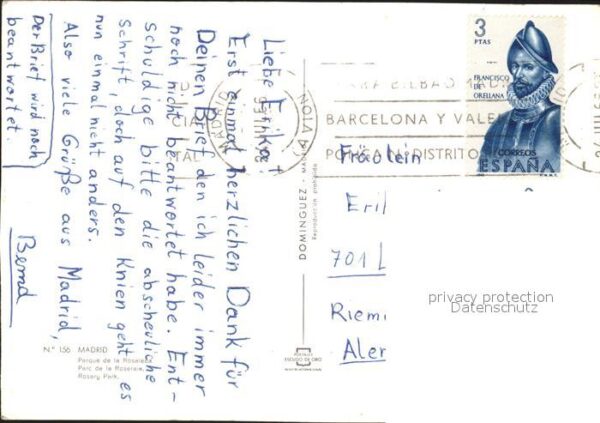 Liebe Erika!
Erst einmal herzlichen Dank für
Deinen Brief den ich leider immer
noch nicht beantwortet habe. Ent-
schuldige bitte die abscheuliche
Schrift, doch auf den Knien geht es
nun einmal nicht anders.
Also viele Grüße aus Madrid,
Bernd
Der Brief wird noch
beantwortet.
N.º 156 MADRID
Parque de la Rosaleda.
Parc de la Roseraie.
Rosery Park.
DOMINGUEZ - MADRID
Reproducción prohibida
POSTALES
ESCUDO DE ORO
3
PTAS
FRANCISCO
DE
ORELLANA
CORREOS
ESPAÑA
MADRID
BILBAO
BARCELONA Y VALEN
DISTRITO
Fräulein
Eri
701
Riem
Aler
privacy protection
Datenschutz